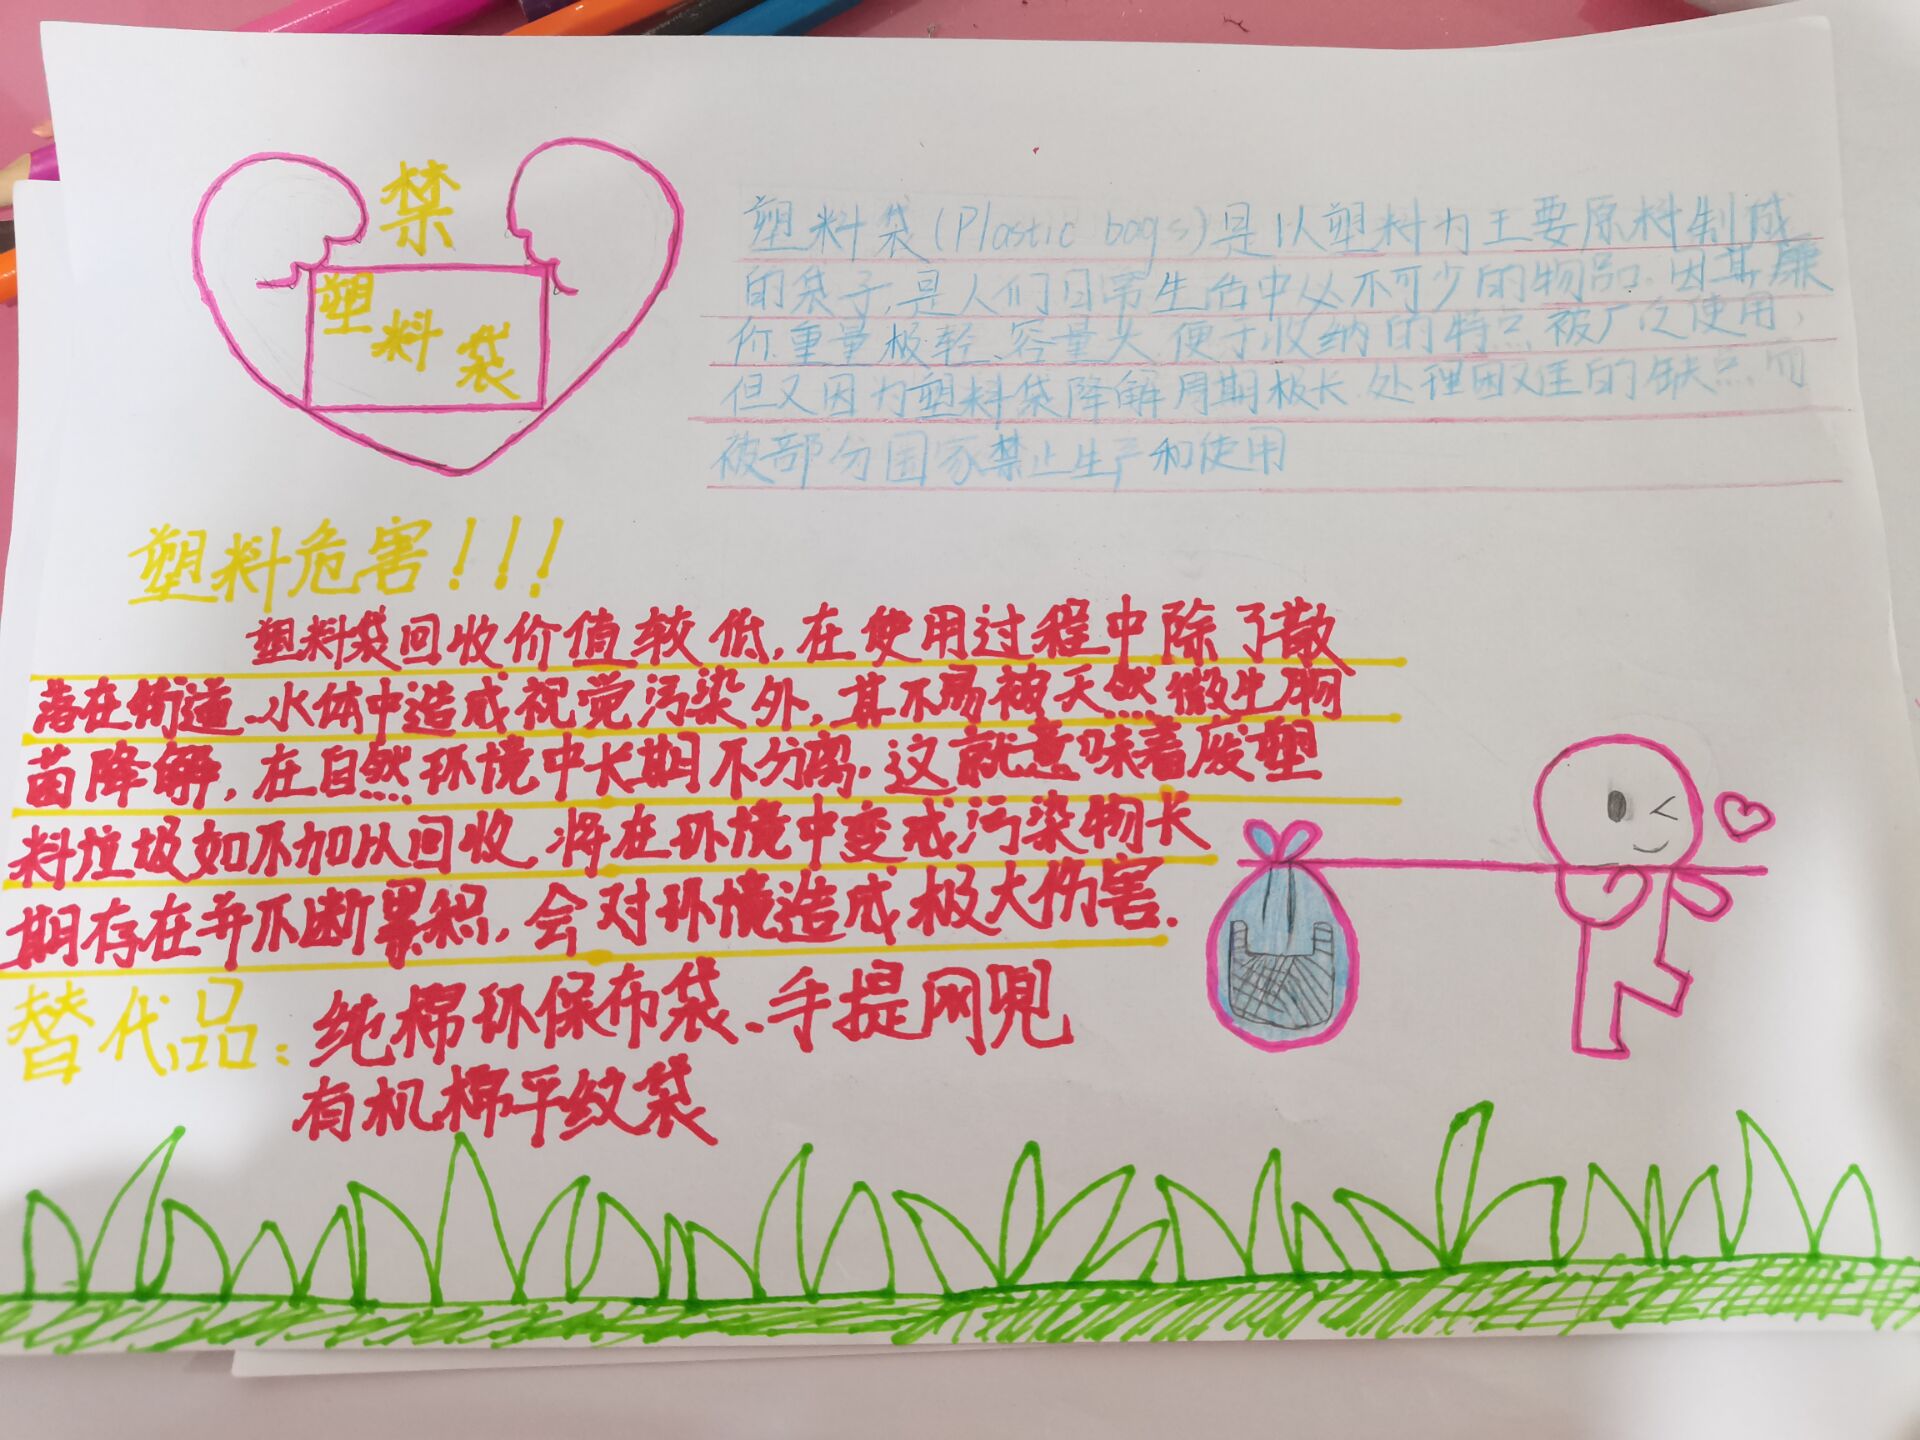 禁
塑料袋
塑料袋(Plastic bags)是以塑料为主要原料制成
的袋子,是人们日常生活中必不可少的物品.因其廉
价.重量极轻、容量大.便于收纳的特点被广泛使用,
但又因为塑料袋降解周期极长.处理困难的缺点而
被部分国家禁止生产和使用
塑料危害!!!
塑料袋回收价值较低,在使用过程中除了散
落在街道、水体中造成视觉污染外,其不易被天然微生物
菌降解,在自然环境中长期不分离.这就意味着废塑
料垃圾如不加以回收,将在环境中变成污染物长
期存在并不断累积,会对环境造成极大伤害.
替代品:纯棉环保布袋、手提网兜
有机棉平纹袋